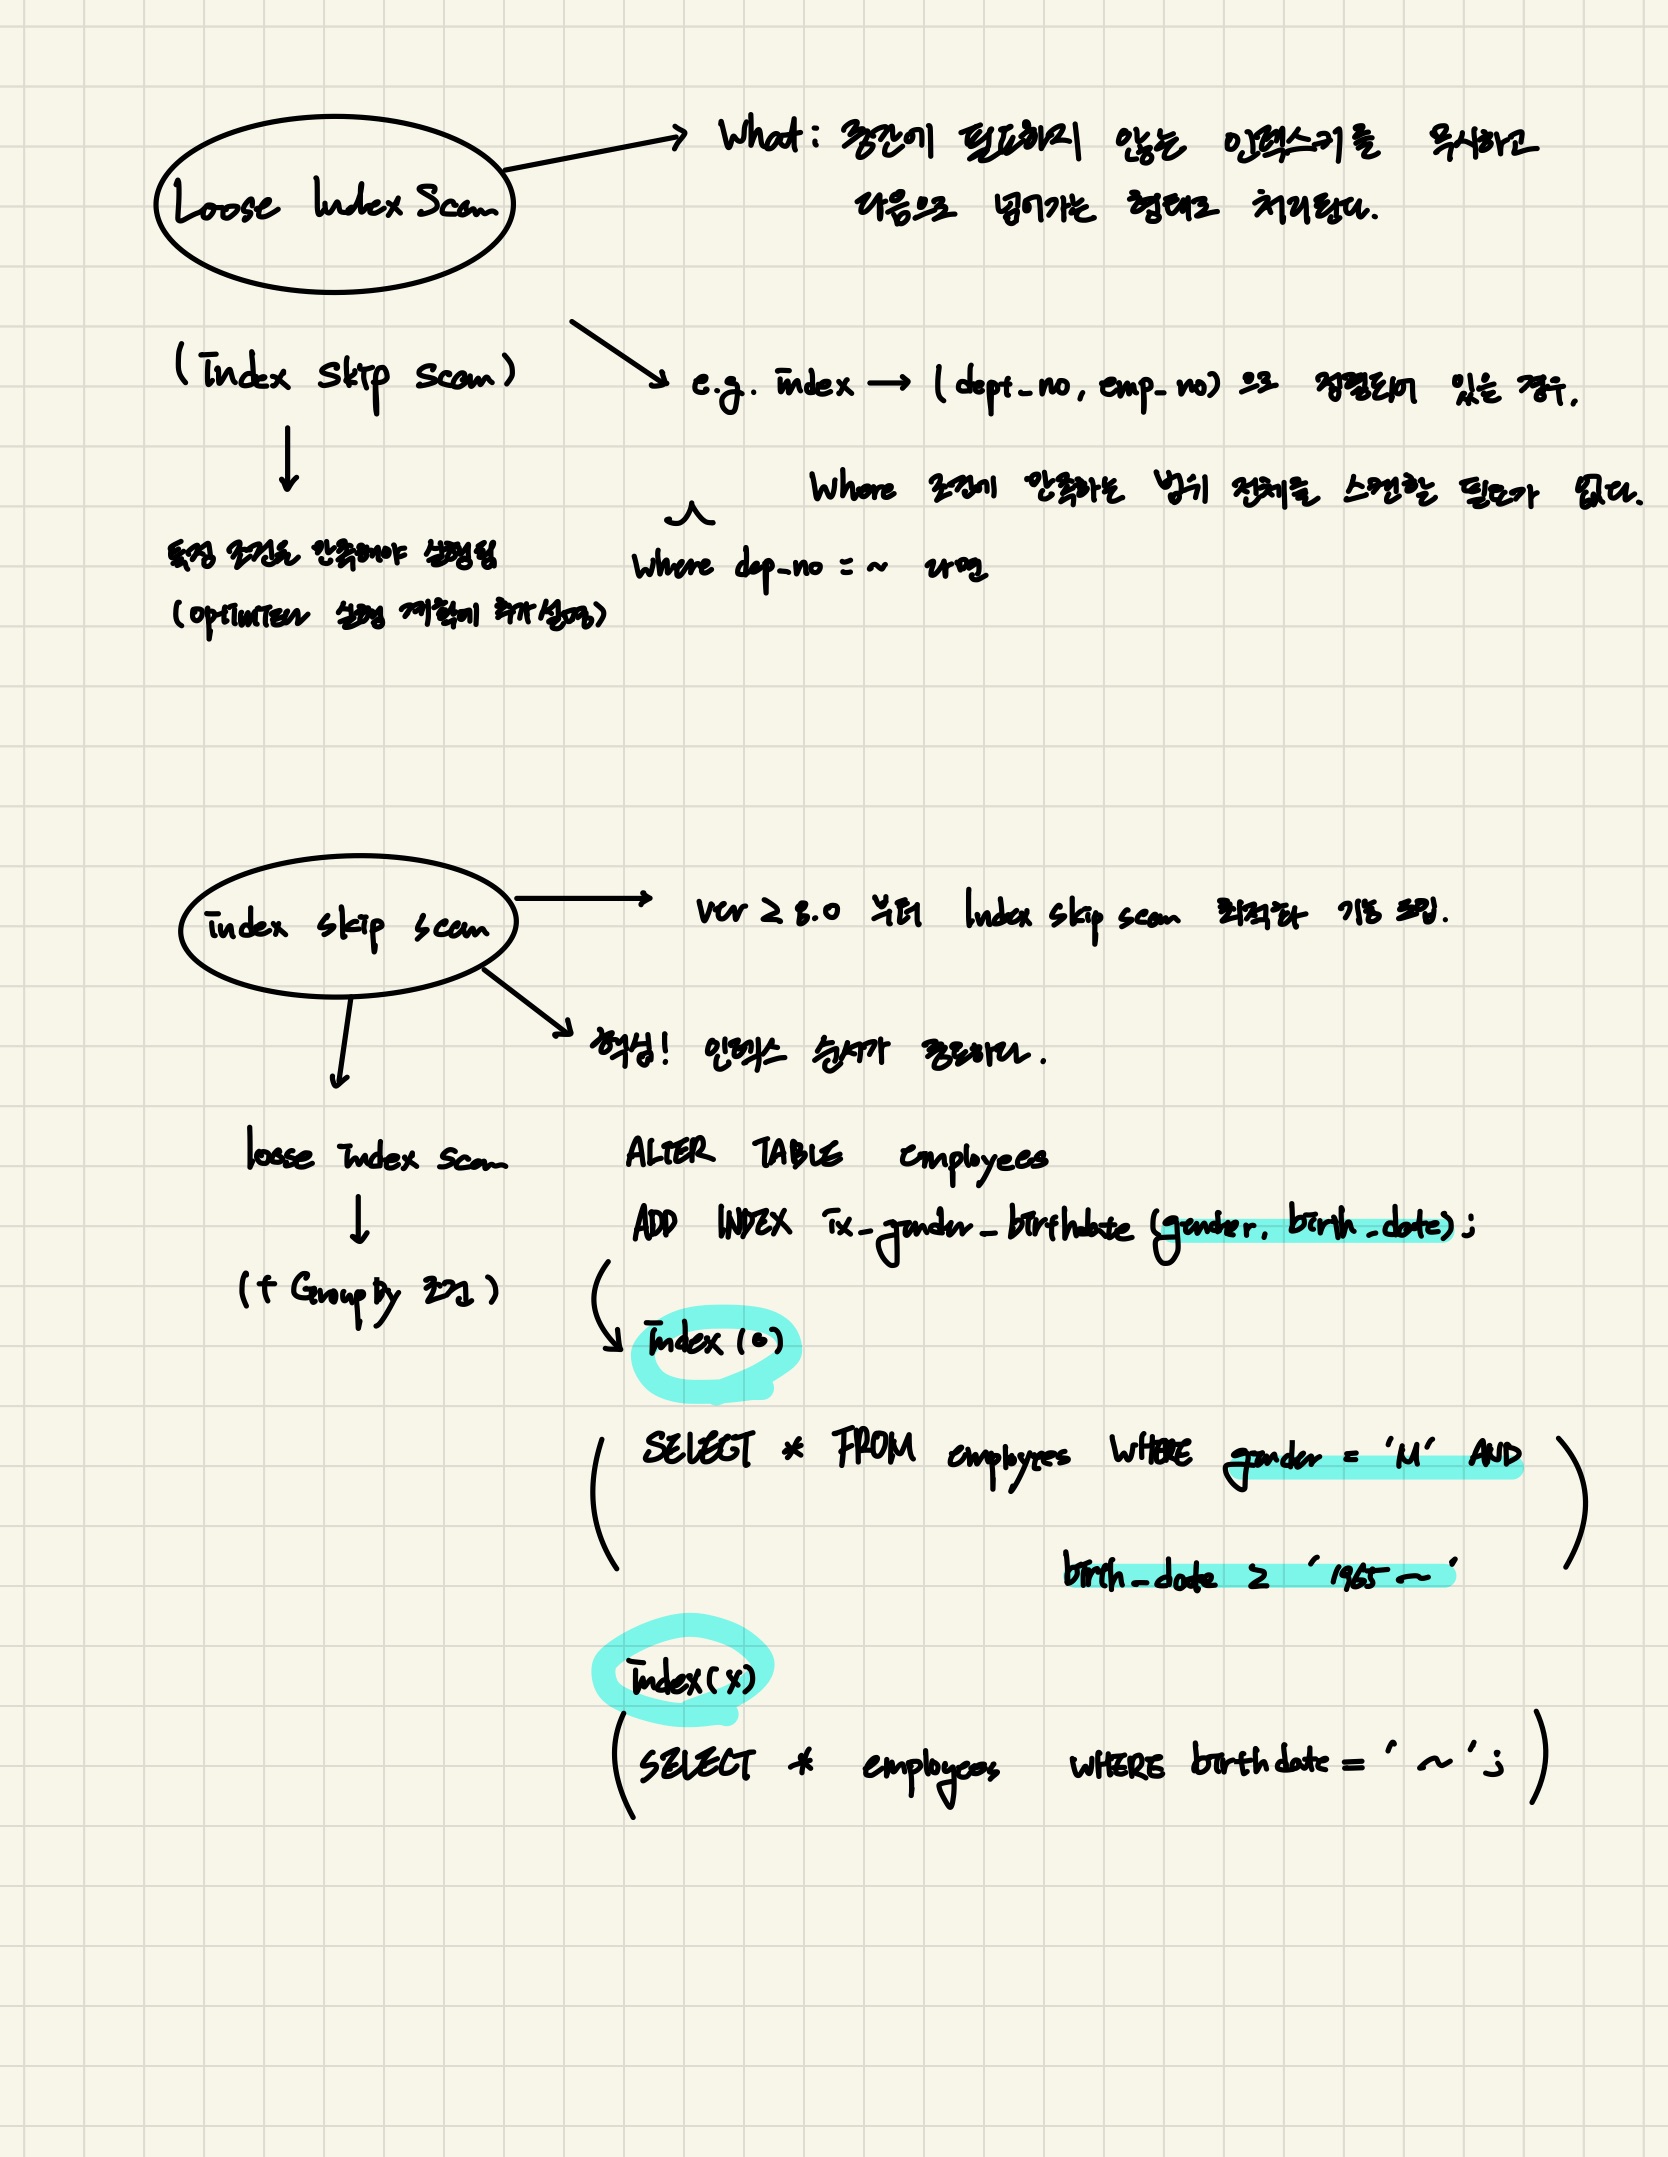 Loose Index Scan
What: 중간에 필요하지 않는 인덱스키를 무시하고
다음으로 넘어가는 형태로 처리한다.
(Index Skip Scan)
특정 조건을 만족해야 실행됨
(optimizer 실행 계획에 추가 설명)
e.g. index → (dept_no, emp_no) 으로 정렬되어 있는 경우,
Where 조건에 만족하는 범위 전체를 스캔할 필요가 없다.
Where dep_no = ~ 라면
index skip scan
ver ≥ 8.0 부터 Index skip scan 최적화 기능 도입.
핵심! 인덱스 순서가 중요하다.
loose index scan
(+ Group By 조건)
ALTER TABLE employees
ADD INDEX ix_gender_birthdate (gender, birth_date);
index (o)
(SELECT * FROM employees WHERE gender = 'M' AND
birth_date ≥ '1965~')
index (x)
(SELECT * employees WHERE birthdate = '~';)